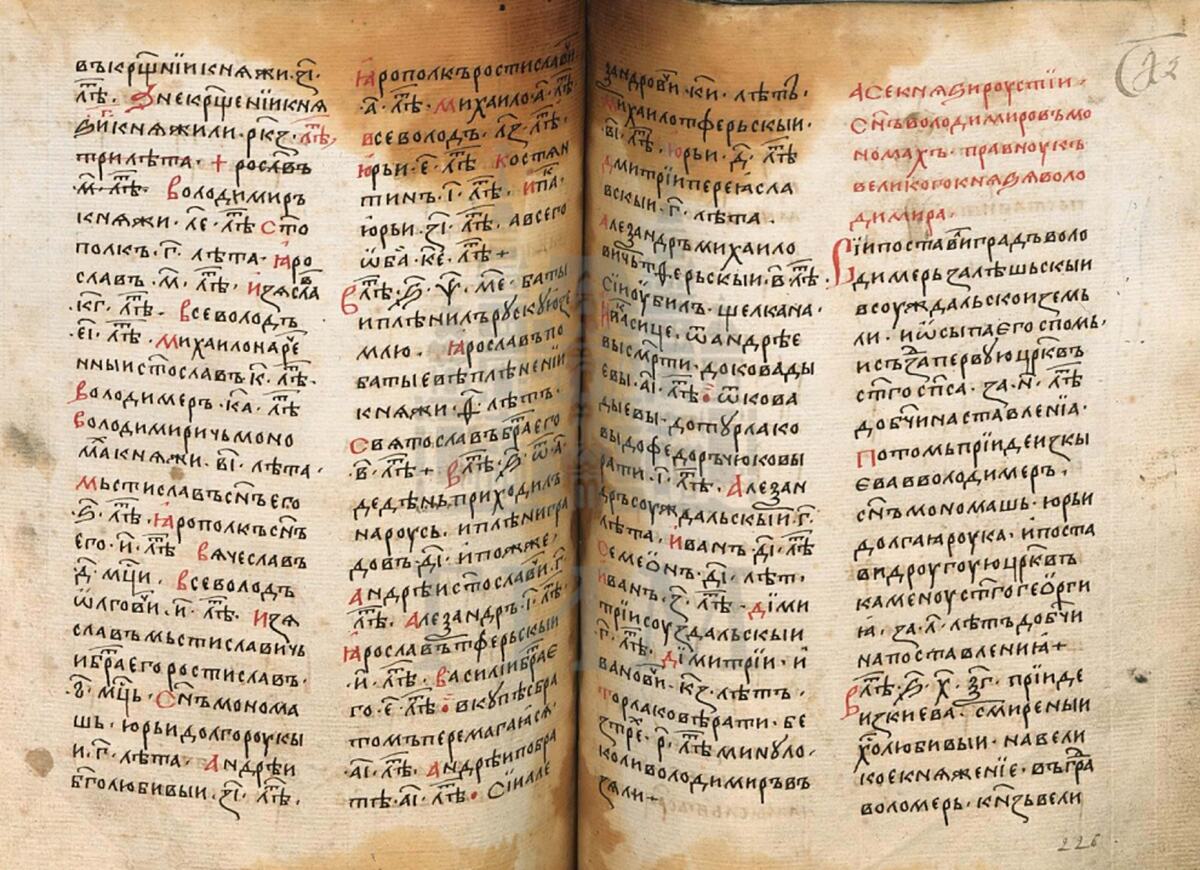 въкр҃щ҃нїи княжи · з҃і ·
лѣ҃т · Ѕ не кр҃щенїи кня
ѕи княжили · р҃к҃з · лѣ҃т ·
три лѣта · + рослв҃ъ
· м҃ · лѣ҃т · володимиръ
княжи · л҃е · лѣ҃т · ст҃о
полкъ · г҃ · лѣта · ꙗро
славъ · м҃ · лѣ҃т · изяславъ
· к҃г · лѣ҃т · всеволодъ
· е҃і · лѣ҃т · михаило нар҃е
нныи ст҃ославъ · к҃ · лѣ҃т ·
володимеръ · к҃а · лѣ҃т
володимиричь моно
ма҃ княжи · в҃і · лѣта ·
мьстиславъ сн҃ъ его
· ѕ҃ · лѣ҃т · ꙗрополкъ сн҃ъ
его · и҃ · лѣ҃т вячеславъ
· д҃ · мц҃и · всеволодъ
ѡлгови҃ч · и҃ · лѣ҃т · изя
славъ мьстиславичь
и бра҃ его ростиславъ ·
· г҃ · мц҃ь · сн҃ъ монома
шь · юрьи долгорукы
и · г҃ · лѣта · андрѣи
бг҃олюбивыи · з҃і · лѣ҃т ·
ꙗрополкъ ростислави҃ч
· а҃ · лѣ҃т · михаило · а҃ · лѣ҃т ·
всеволодъ · л҃з · лѣ҃т ·
юрьи · е҃ · лѣ҃т костян
тинъ · і҃ · лѣ҃т · ї па҃к ·
юрьи · з҃і · лѣ҃т · а всего
ѡба҃ · к҃е · лѣ҃т +
в лѣ҃т · ѕ҃ · ѱ҃ · м҃е · баты
и плѣнилъ рускую зе
млю · ꙗрославъ по
батыевѣ плѣненїи
княжи · ф҃ лѣтъ ·
святославъ бра҃ его
· в҃ · лѣ҃т + в лѣ҃т · ѕ҃ · ѿ҃а ·
дедѣнь приходилъ
на русь · и плѣни гра
довъ · д҃і · и пожже ·
андрѣи ст҃ослави҃ч · г҃ ·
лѣ҃т · алеѯандръ · і҃ · лѣ҃т ·
ꙗрославъ тферьскыи
· и҃ · лѣ҃т · василїи бра҃ е
го · е҃ · лѣ҃т · вкупѣ с бра
томъ перемагаꙗся ·
· а҃і · лѣ҃т · андрѣи по бра
тѣ · а҃і · лѣ҃т · Сїи але
ѯандрови҃ч · к҃и · лѣтъ ·
михаило тферьскыи ·
· в҃і · лѣ҃т · юрьи · д҃ · лѣ҃т
дмитрїи переꙗсла
вскыи · г҃ · лѣта ·
алеѯандръ михаило
вичь тферьскыи · в҃ · лѣ҃т ·
сїи оубилъ щелкана ·
ипа҃ сице · ѿ андрѣе
вы см҃рти · до ковады
евы · а҃і · лѣ҃т · ѿ кова
дыевы · до турлако
вы до федорчюковы
рати · і҃ · лѣ҃т · алеѯан
дръ суждальскыи · г҃ ·
лѣта · иванъ · д҃і · лѣ҃т
семеѡнъ · д҃і · лѣт ·
иванъ · з҃ · лѣ҃т · дїми
трїи суздальскыи
· г҃ · лѣ҃т · дїмитрїи · и
ванови҃ч · к҃з · лѣтъ ·
торлаковѣ рати · бе
з тре҃ · р҃ · лѣ҃т минуло ·
коли володимиръ в
зяли +
А се княѕи роустїи ·
сн҃ъ володимировъ мо
номахъ · правноукъ
великого княѕя воло
димира ·
Сїи постави҃ градъ воло
димерь залѣшьскыи
в суждальскои земь
ли · и ѡсыпа҃ его спомь ·
и сьзда҃ первую цр҃ квъ
ст҃го сп҃са · за · н҃ · лѣ҃т
до бч҃ина ставленїа ·
Потомь прїиде изкы
ева в володимеръ ·
сн҃ъ мономашь · юрьи
долгаꙗ рука · ипоста
ви другую црк҃въ
камену ст҃го геѡрги
ꙗ · за · л҃ · лѣтъ до бч҃и
на поставленїꙗ +
В лѣ҃т · ѕ҃ · х҃ · ѯ҃г · прїиде
из киева · смиреныи
х҃олюбивыи · на вели
кое княженїе · въ гра҃
воломерь · кн҃зь вели
226